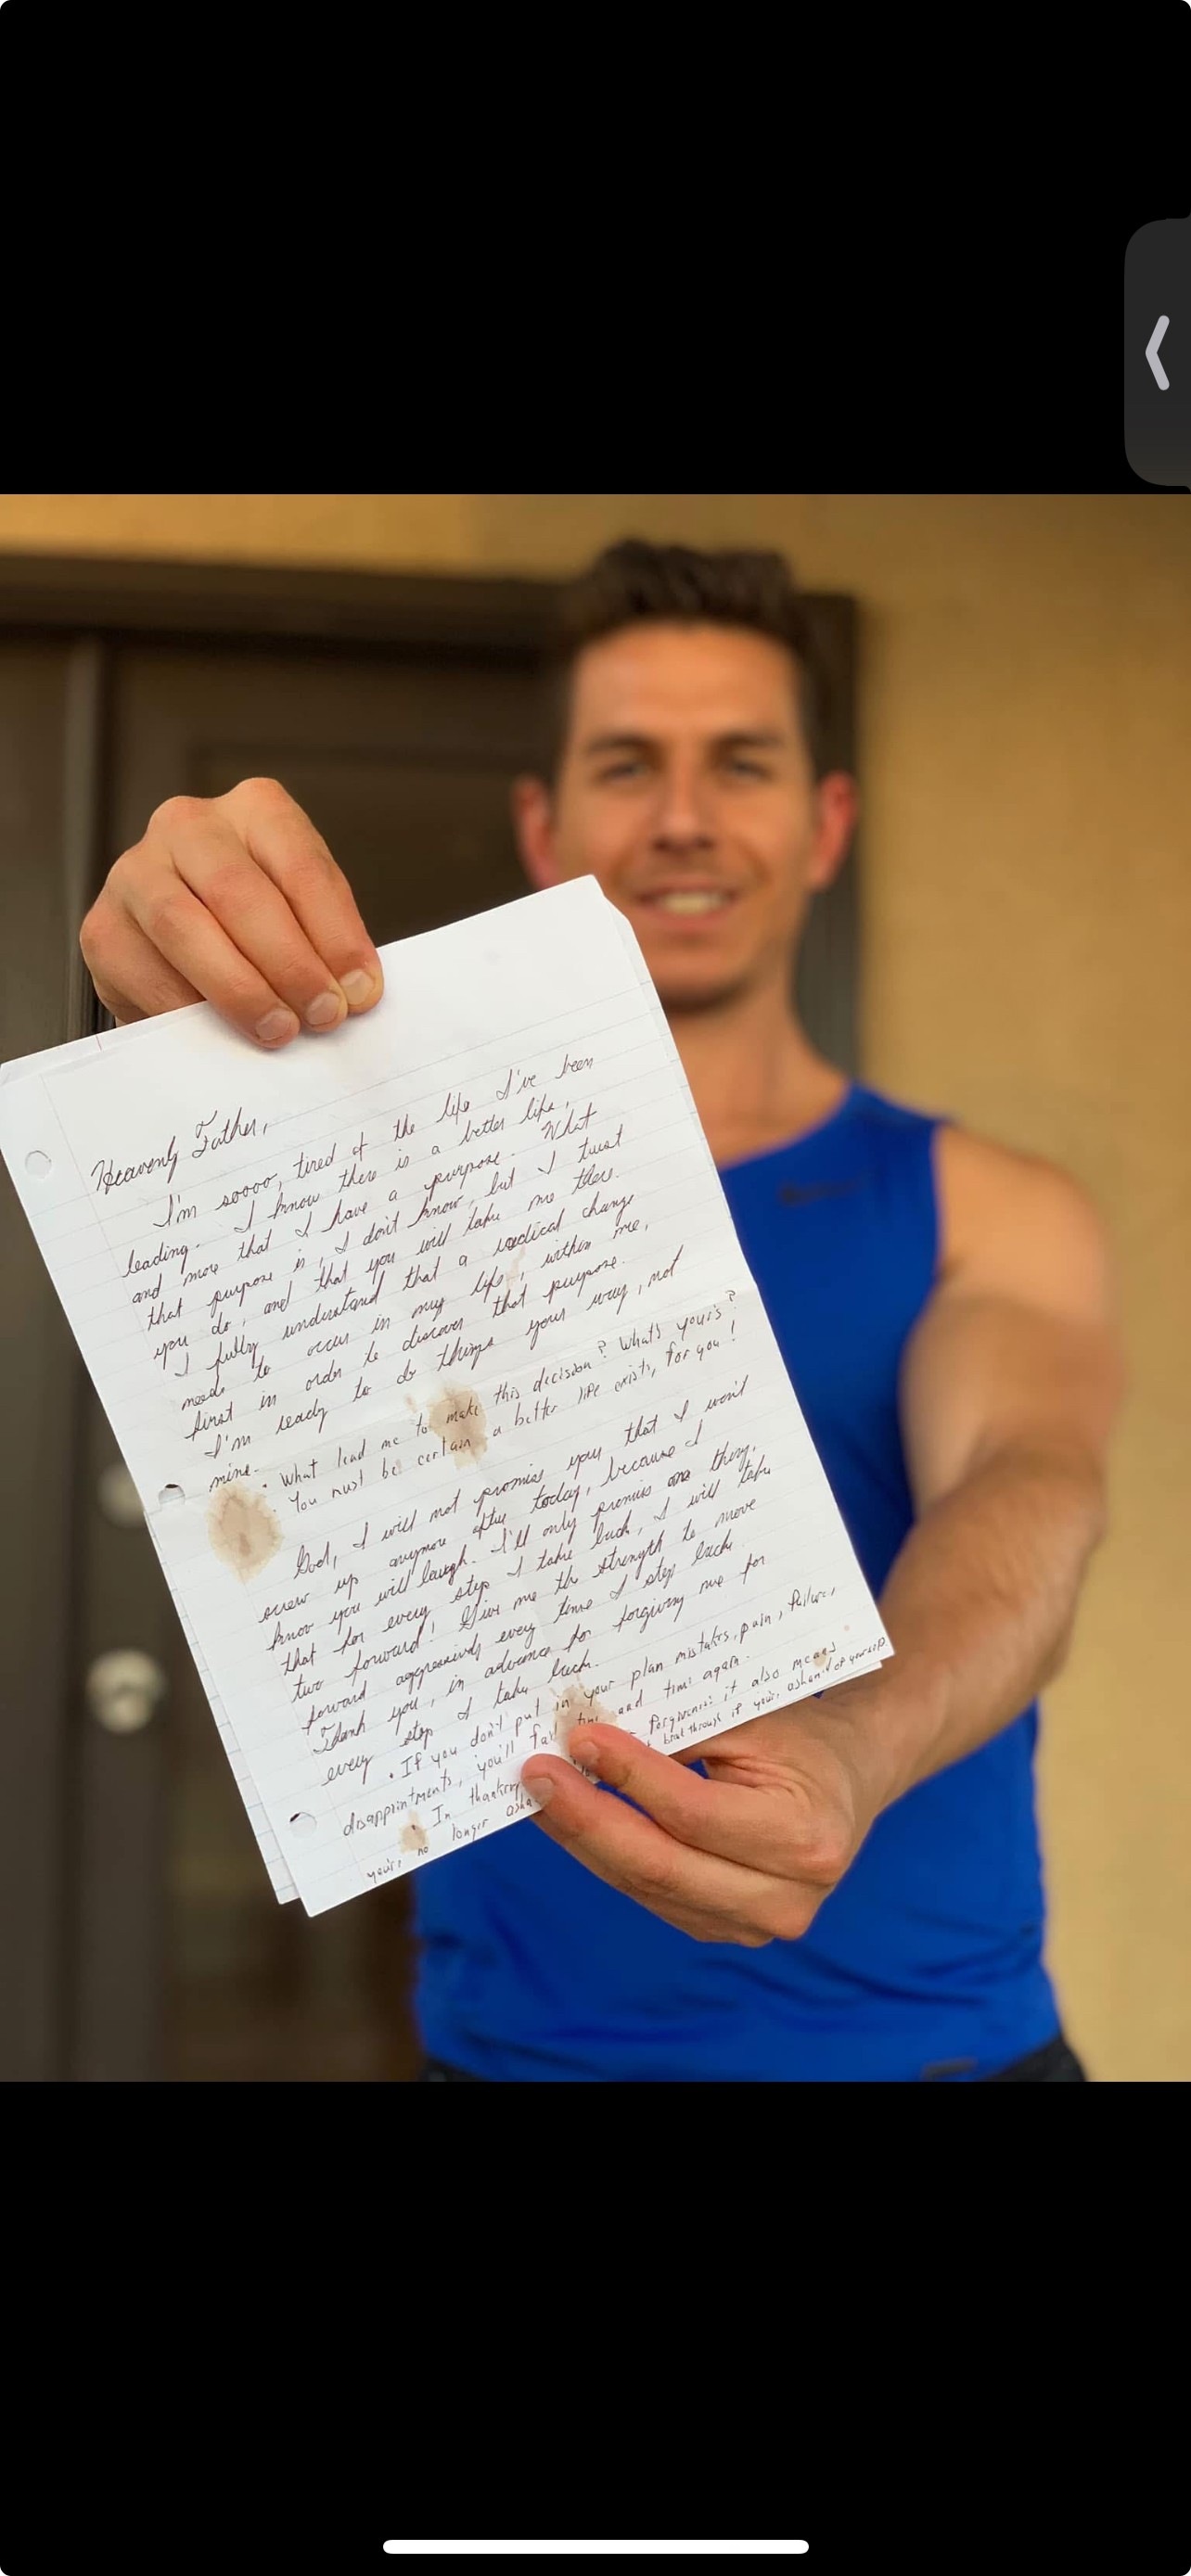 Heavenly Father,
I'm soooo, tired of the life I've been
leading. I know there is a better life,
and more that I have a purpose. What
that purpose is, I don't know, but I trust
you do, and that you will take me there.
I fully understand that a radical change
needs to occur in my life, within me,
first in order to discover that purpose.
I'm ready to do things your way, not
mine.
• What lead me to make this decision? What's yours?
• You must be certain a better life exists, for you!
God, I will not promise you that I won't
screw up anymore after today, because I
know you will laugh. I'll only promise one thing,
that for every step I take back, I will take
two forward! Give me the strength to move
forward aggressively every time I step back.
Thank you, in advance for forgiving me for
every step I take back.
• If you don't put in your plan mistakes, pain, failure,
disappointments, you'll fail time and time again.
• In thanking forgiveness it also means
your, no longer through if your, ashamed of yourself